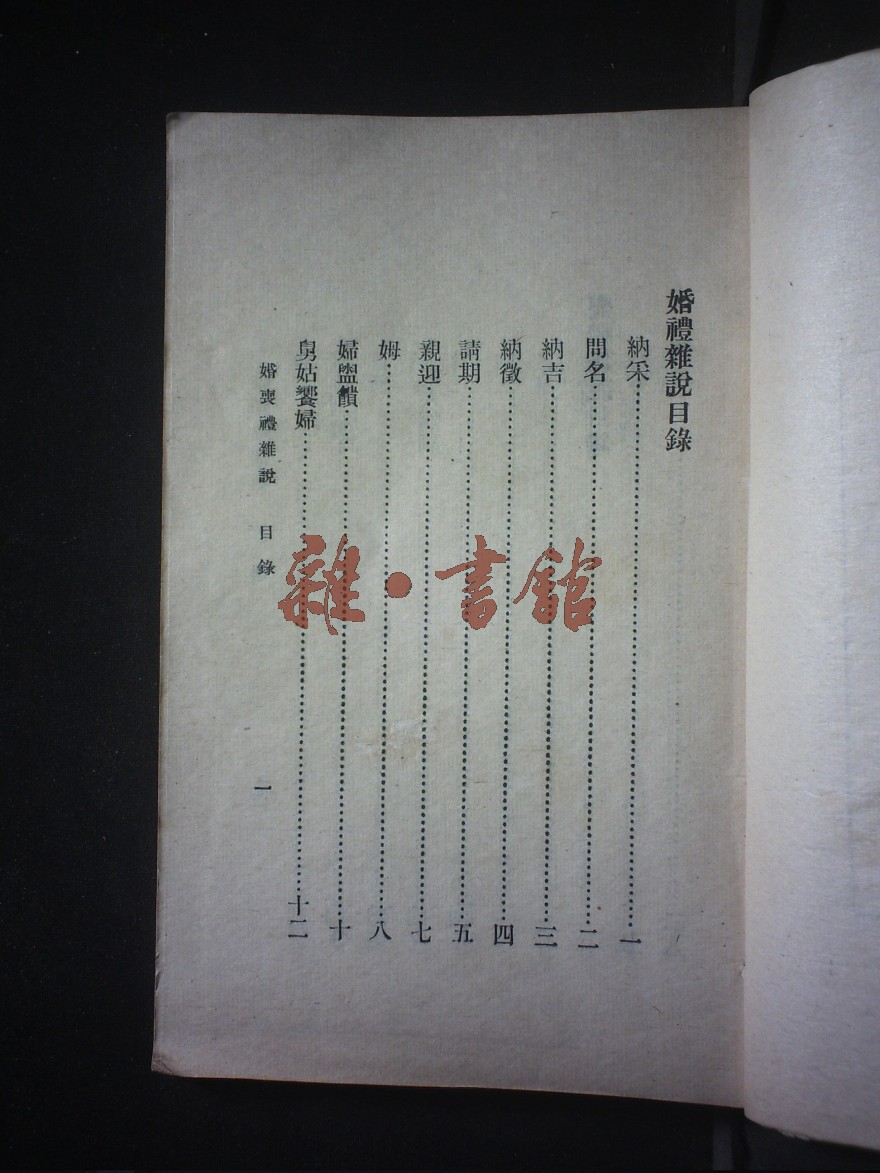 婚禮雜說目錄
納采⋯⋯⋯⋯一
問名⋯⋯⋯⋯二
納吉⋯⋯⋯⋯三
納徵⋯⋯⋯⋯四
請期⋯⋯⋯⋯五
親迎⋯⋯⋯⋯七
姆⋯⋯⋯⋯八
婦盥饋⋯⋯⋯⋯十
舅姑饗婦⋯⋯⋯⋯十二
婚喪禮雜說 目錄 一
雜·書館